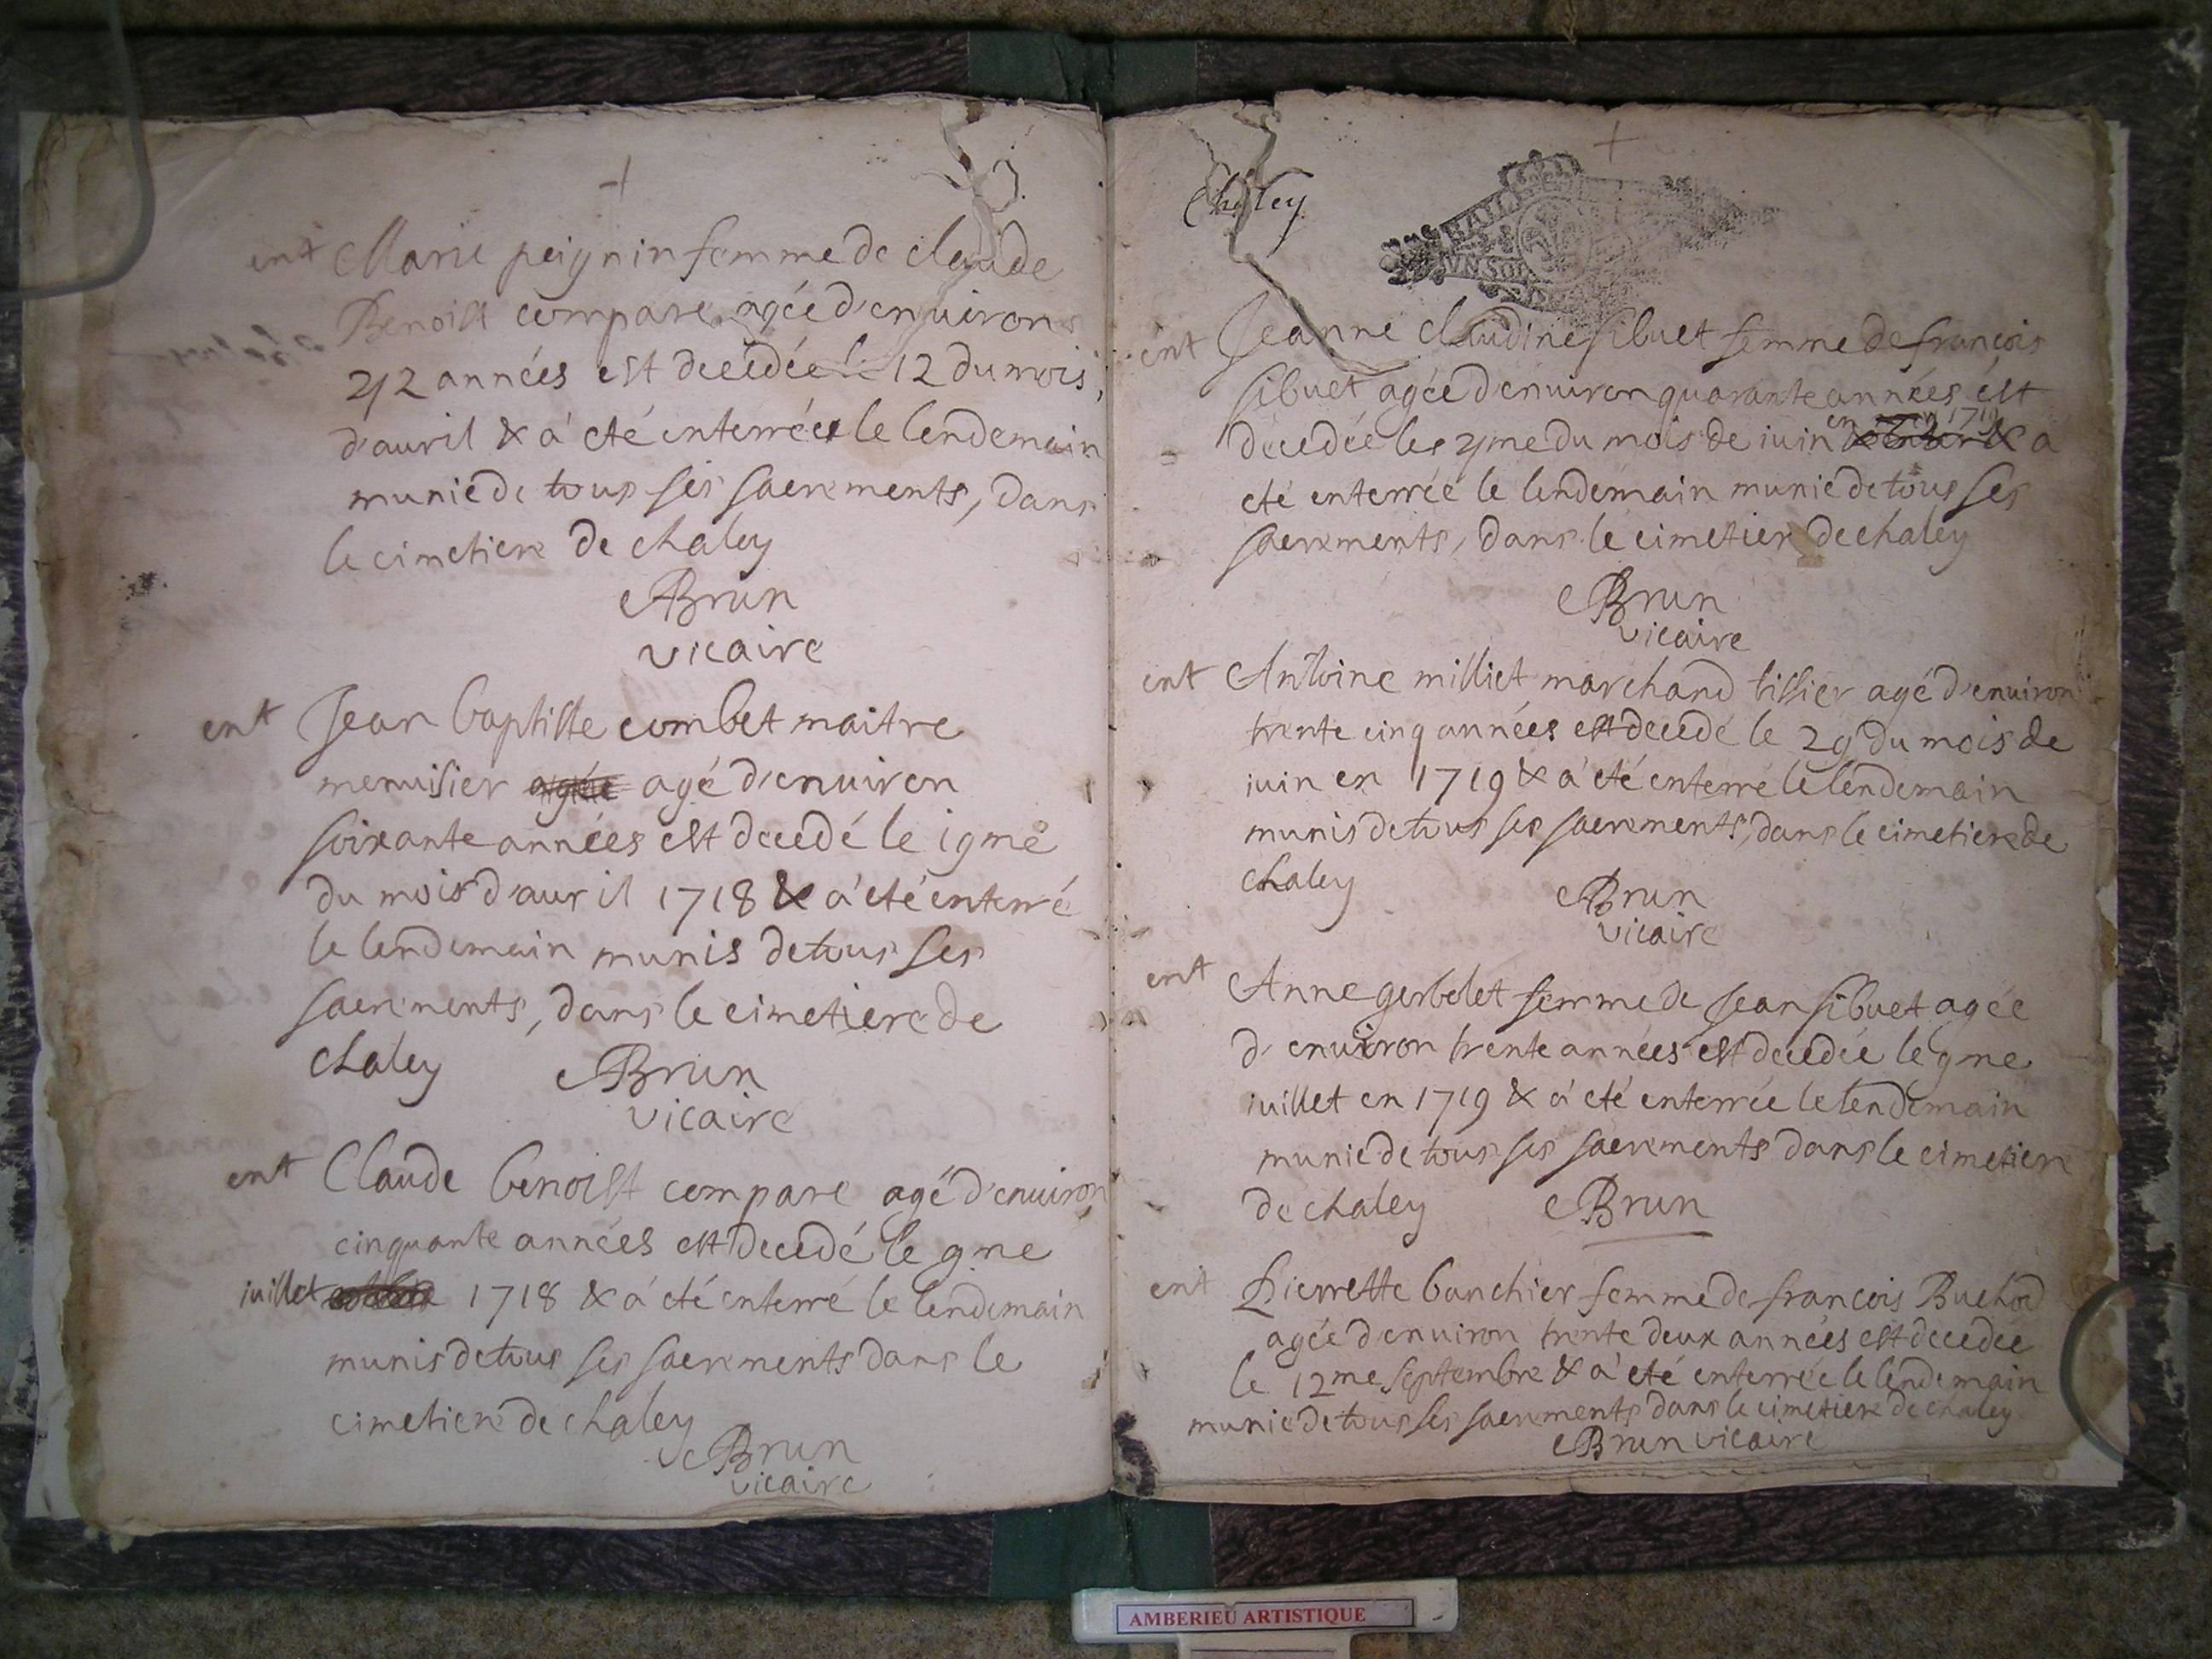 ent Marie peignin femme de claude
Benoist compare agée d'enuiron
42 années est decedée le 12 du mois
d'auril & a' eté enterrée le lendemain
munie de tous ses sacrements, dans
le cimetiere de chaley
Brun
vicaire
ent Jean baptiste combet maitre
menuisier agée agé d'enuiron
soixante années est decedé le 19me
du mois d'auril 1718 & a' eté enterré
le lendemain munis de tous ses
sacrements, dans le cimetiere de
chaley Brun
vicaire
ent Claude benoist compare agé d'enuiron
cinquante années est decedé le 9me
juillet 1718 & a' eté enterré le lendemain
munis de tous ses sacrements dans le
cimetiere de chaley
Brun
vicaire
Chaley
UN SOL
ent Jeanne claudine sibuet femme de francois
sibuet agée d'enuiron quarante années est
en 1719
décedée le 4me du mois de iuin & a
eté enterrée le lendemain munie de tous ses
sacrements, dans le cimetiere de chaley
Brun
vicaire
ent Antoine milliet marchand tissier agé d'enuiron
trente cinq années est decedé le 29 du mois de
iuin en 1719 & a' eté enterré le lendemain
munis de tous ses sacrements, dans le cimetiere de
chaley Brun
vicaire
ent Anne gerbolet femme de Jean sibuet agée
d'enuiron trente années est decedée le 9me
iuillet en 1719 & a' eté enterrée le lendemain
munie de tous ses sacrements dans le cimetiere
de chaley Brun
ent Pierrette banchier femme de francois Buchod
agée d'enuiron trente deux années est decedée
le 12me septembre & a' eté enterrée le lendemain
munie de tous ses sacrements dans le cimetiere de chaley
Brun vicaire
AMBERIEU ARTISTIQUE